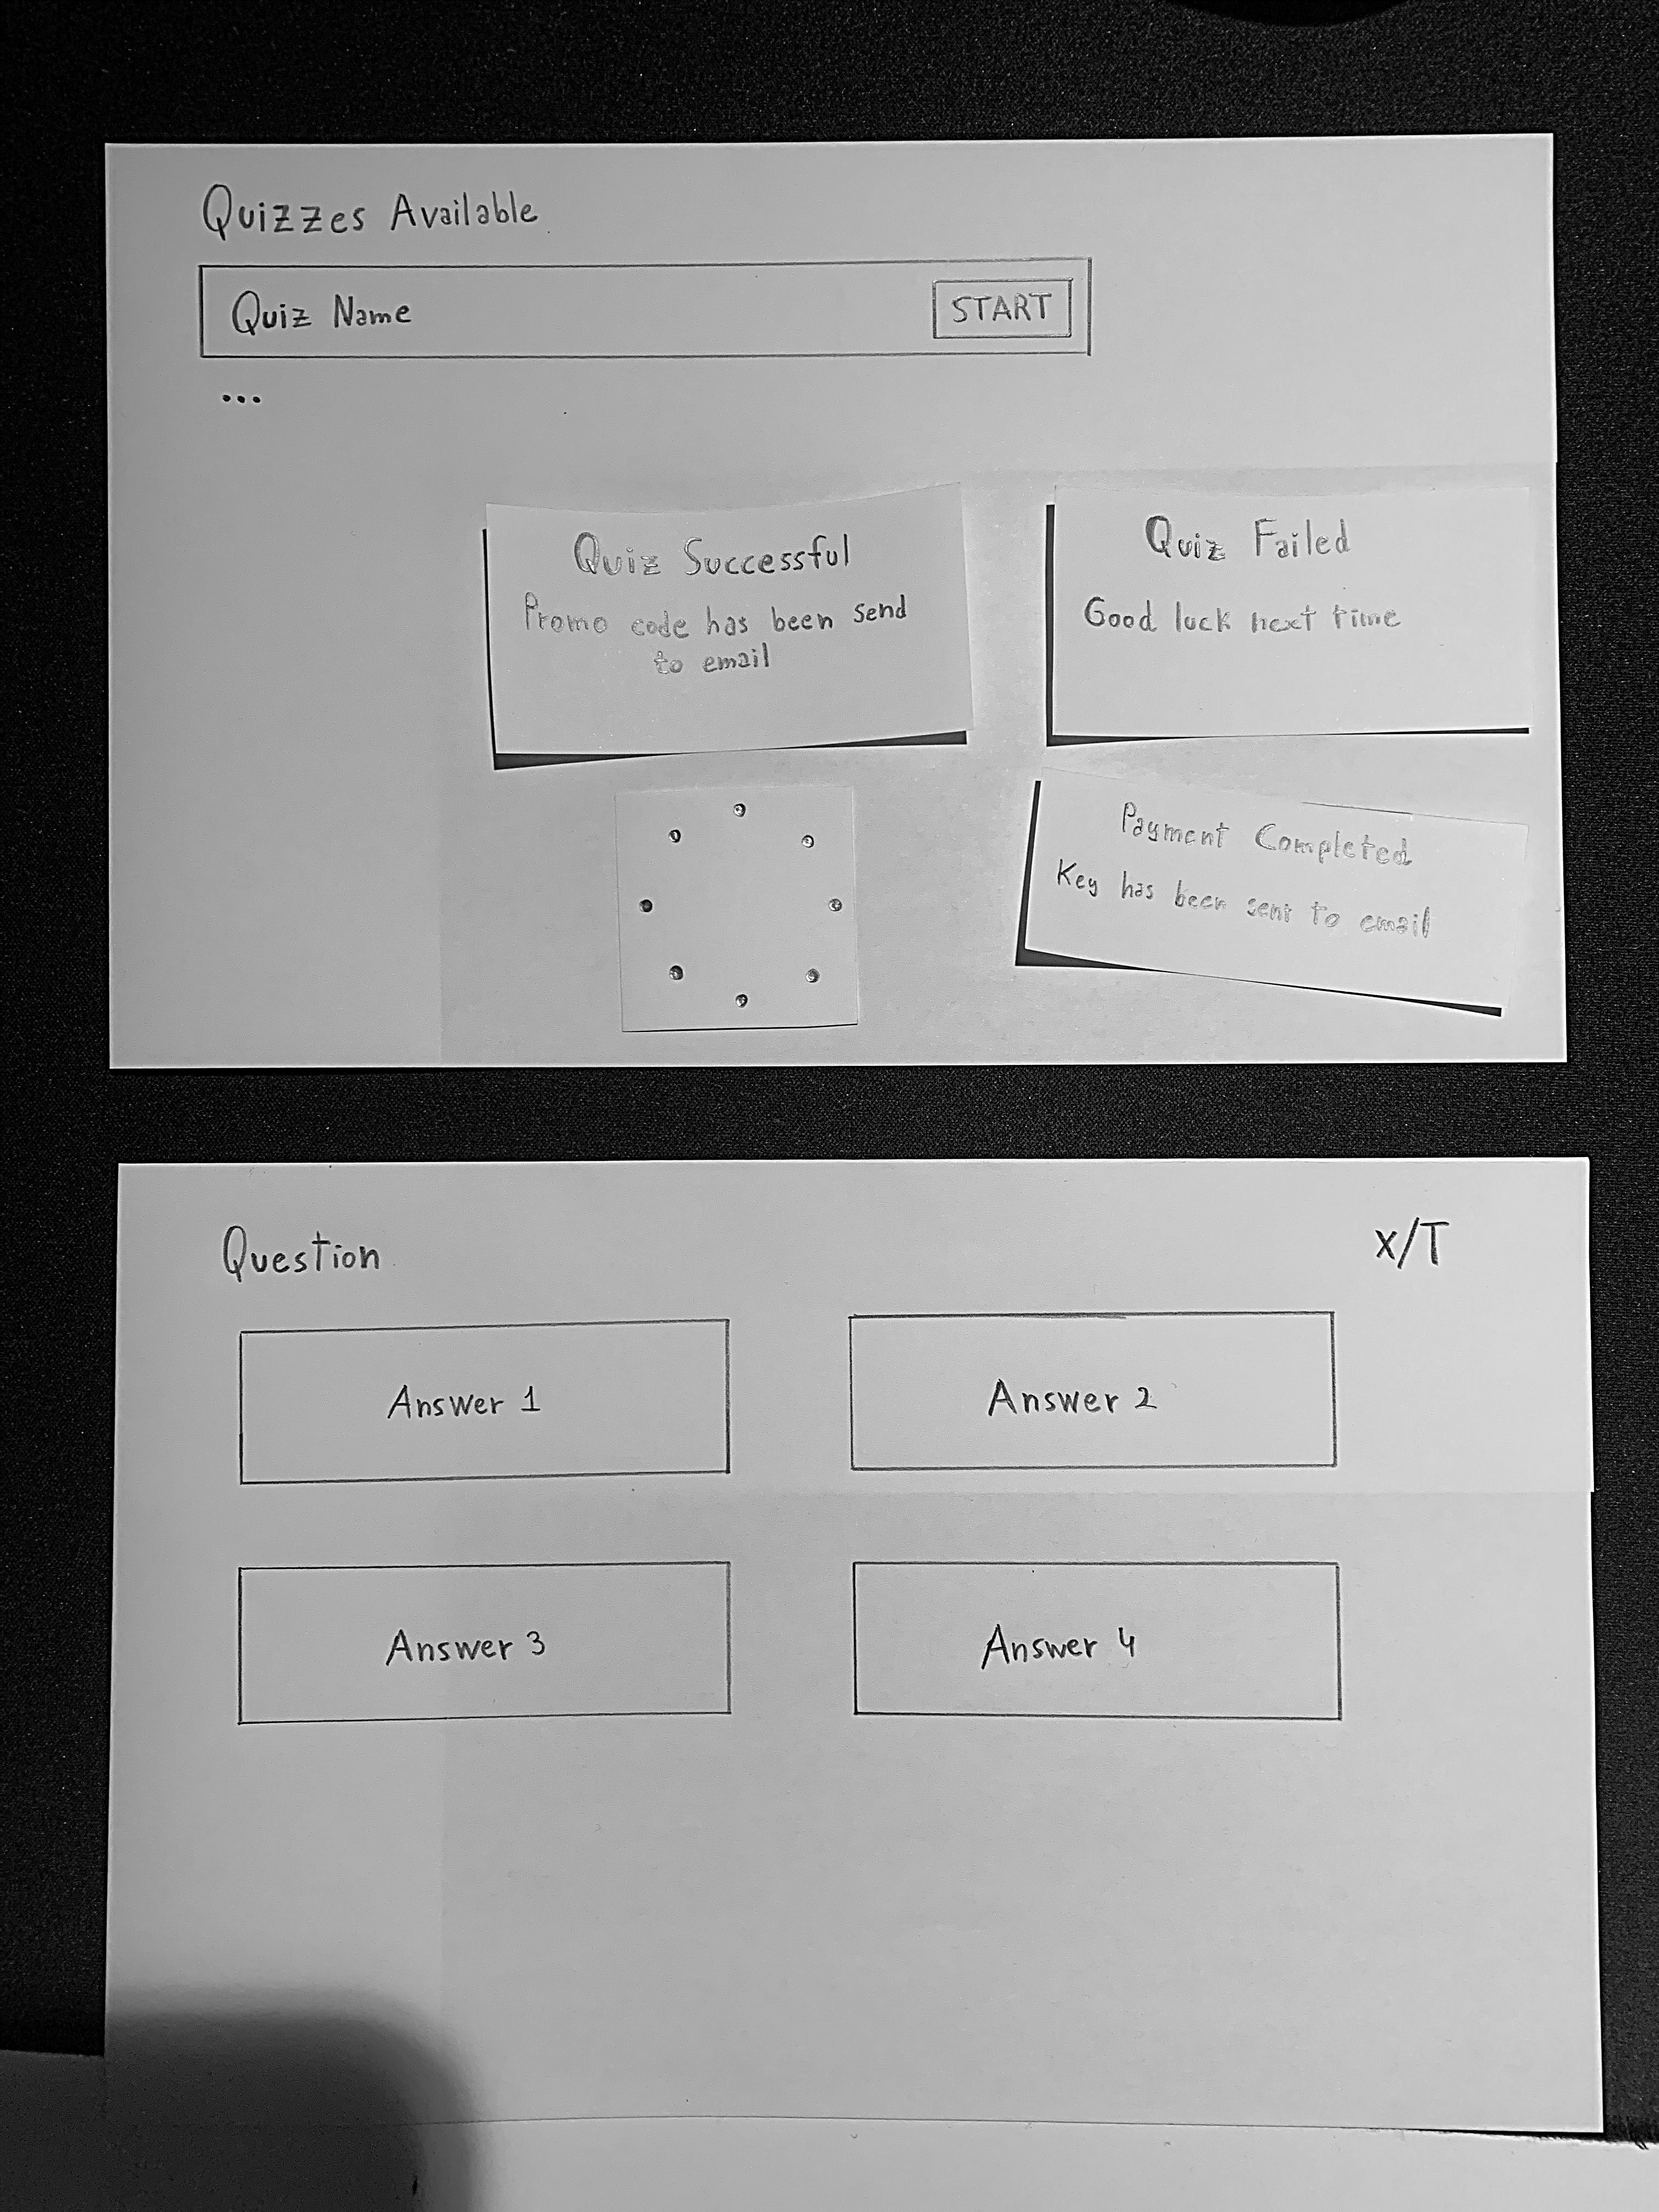 Quizzes Available
Quiz Name
START
...
Quiz Successful
Promo code has been send
to email
Quiz Failed
Good luck next time
Payment Completed
Key has been sent to email
Question
x/T
Answer 1
Answer 2
Answer 3
Answer 4